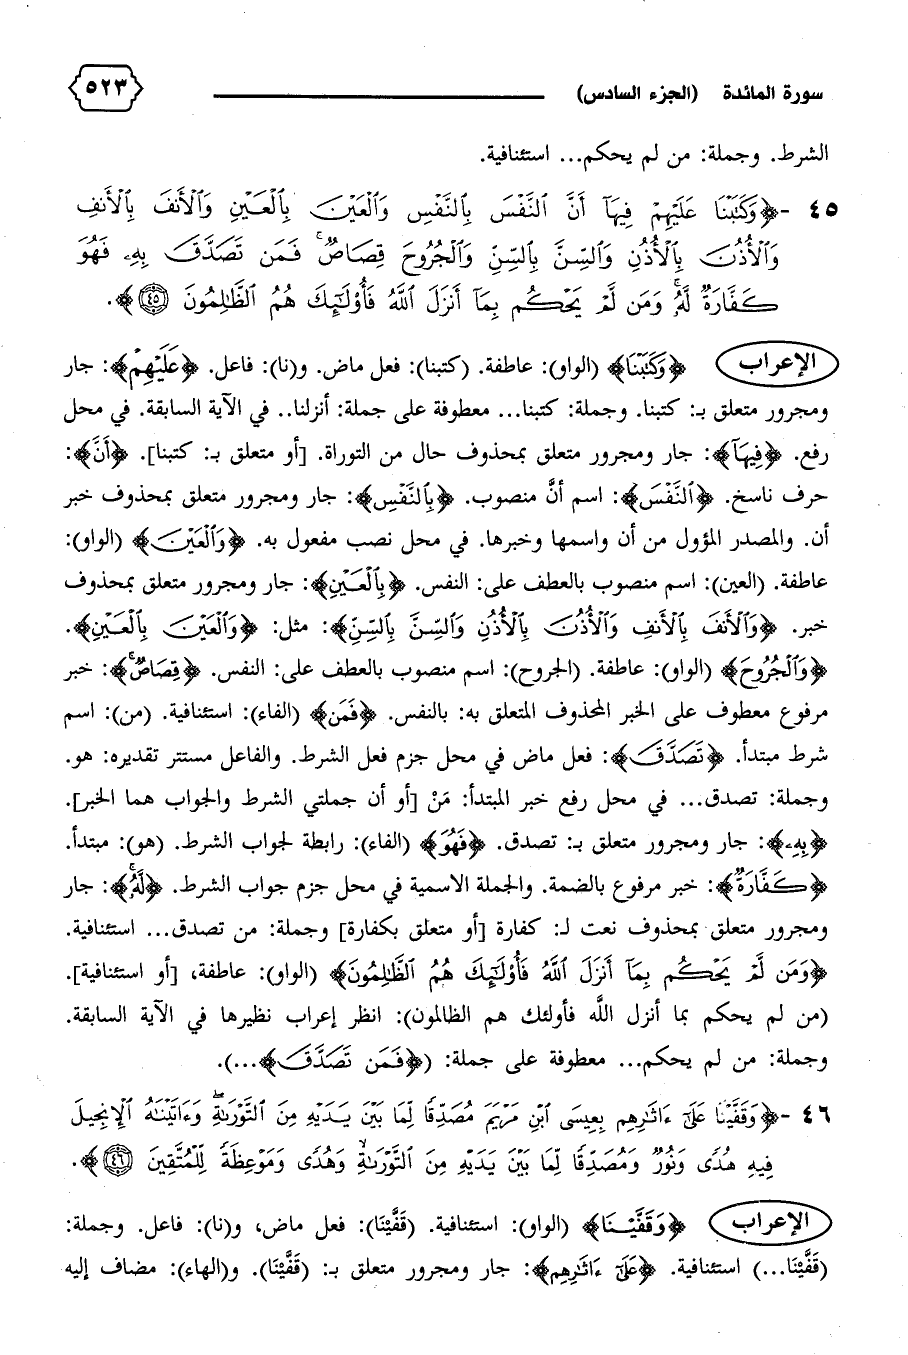 سورة المائدة (الجزء السادس) ٥٢٣
الشرط. وجملة: من لم يحكم... استئنافية.
٤٥ - ﴿وَكَتَبْنَا عَلَيْهِمْ فِيهَآ أَنَّ ٱلنَّفْسَ بِٱلنَّفْسِ وَٱلْعَيْنَ بِٱلْعَيْنِ وَٱلْأَنفَ بِٱلْأَنفِ
وَٱلْأُذُنَ بِٱلْأُذُنِ وَٱلسِّنَّ بِٱلسِّنِّ وَٱلْجُرُوحَ قِصَاصٌ ۚ فَمَن تَصَدَّقَ بِهِۦ فَهُوَ
كَفَّارَةٌ لَّهُۥ ۚ وَمَن لَّمْ يَحْكُم بِمَآ أَنزَلَ ٱللَّهُ فَأُو۟لَـٰٓئِكَ هُمُ ٱلظَّـٰلِمُونَ ٤٥﴾.
الإعراب ﴿وَكَتَبْنَا﴾ (الواو): عاطفة. (كتبنا): فعل ماض. و(نا): فاعل. ﴿عَلَيْهِمْ﴾: جار
ومجرور متعلق بـ: كتبنا. وجملة: كتبنا... معطوفة على جملة: أنزلنا.. في الآية السابقة. في محل
رفع. ﴿فِيهَآ﴾: جار ومجرور متعلق بمحذوف حال من التوراة. [أو متعلق بـ: كتبنا]. ﴿أَنَّ﴾:
حرف ناسخ. ﴿ٱلنَّفْسَ﴾: اسم أنَّ منصوب. ﴿بِٱلنَّفْسِ﴾: جار ومجرور متعلق بمحذوف خبر
أن. والمصدر المؤول من أن واسمها وخبرها. في محل نصب مفعول به. ﴿وَٱلْعَيْنَ﴾ (الواو):
عاطفة. (العين): اسم منصوب بالعطف على: النفس. ﴿بِٱلْعَيْنِ﴾: جار ومجرور متعلق بمحذوف
خبر. ﴿وَٱلْأَنفَ بِٱلْأَنفِ وَٱلْأُذُنَ بِٱلْأُذُنِ وَٱلسِّنَّ بِٱلسِّنِّ﴾: مثل: ﴿وَٱلْعَيْنَ بِٱلْعَيْنِ﴾.
﴿وَٱلْجُرُوحَ﴾ (الواو): عاطفة. (الجروح): اسم منصوب بالعطف على: النفس. ﴿قِصَاصٌ ۚ﴾: خبر
مرفوع معطوف على الخبر المحذوف المتعلق به: بالنفس. ﴿فَمَن﴾ (الفاء): استئنافية. (من): اسم
شرط مبتدأ. ﴿تَصَدَّقَ﴾: فعل ماض في محل جزم فعل الشرط. والفاعل مستتر تقديره: هو.
وجملة: تصدق... في محل رفع خبر المبتدأ: مَنْ [أو أن جملتي الشرط والجواب هما الخبر].
﴿بِهِۦ﴾: جار ومجرور متعلق بـ: تصدق. ﴿فَهُوَ﴾ (الفاء): رابطة لجواب الشرط. (هو): مبتدأ.
﴿كَفَّارَةٌ﴾: خبر مرفوع بالضمة. والجملة الاسمية في محل جزم جواب الشرط. ﴿لَّهُۥ ۚ﴾: جار
ومجرور متعلق بمحذوف نعت لـ: كفارة [أو متعلق بكفارة] وجملة: من تصدق... استئنافية.
﴿وَمَن لَّمْ يَحْكُم بِمَآ أَنزَلَ ٱللَّهُ فَأُو۟لَـٰٓئِكَ هُمُ ٱلظَّـٰلِمُونَ﴾ (الواو): عاطفة، [أو استئنافية].
(من لم يحكم بما أنزل اللَّه فأولئك هم الظالمون): انظر إعراب نظيرها في الآية السابقة.
وجملة: من لم يحكم... معطوفة على جملة: (﴿فَمَن تَصَدَّقَ﴾...).
٤٦ - ﴿وَقَفَّيْنَا عَلَىٰٓ ءَاثَـٰرِهِم بِعِيسَى ٱبْنِ مَرْيَمَ مُصَدِّقًا لِّمَا بَيْنَ يَدَيْهِ مِنَ ٱلتَّوْرَىٰةِ ۖ وَءَاتَيْنَـٰهُ ٱلْإِنجِيلَ
فِيهِ هُدًى وَنُورٌ وَمُصَدِّقًا لِّمَا بَيْنَ يَدَيْهِ مِنَ ٱلتَّوْرَىٰةِ وَهُدًى وَمَوْعِظَةً لِّلْمُتَّقِينَ ٤٦﴾.
الإعراب ﴿وَقَفَّيْنَا﴾ (الواو): استئنافية. (قَفَّيْنَا): فعل ماض، و(نا): فاعل. وجملة:
(قَفَّيْنَا...) استئنافية. ﴿عَلَىٰٓ ءَاثَـٰرِهِم﴾: جار ومجرور متعلق بـ: (قَفَّيْنَا). و(الهاء): مضاف إليه